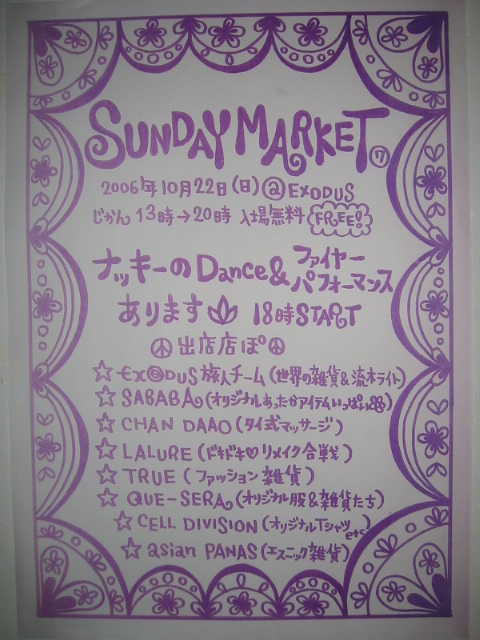 SUNDAY MARKET 7
2006年10月22日(日)@EXODUS
じかん 13時→20時 入場無料 FREE!
ナッキーのDance&ファイヤーパフォーマンス
あります 18時START
出店店ぽ
☆EXODUS旅人チーム(世界の雑貨&流木ライト)
☆SABABA(オリジナルあったかアイテムいっぱい)
☆CHAN DAAO(タイ式マッサージ)
☆LALURE(ドキドキ♡リメイク合戦)
☆TRUE(ファッション雑貨)
☆QUE-SERA(オリジナル服&雑貨たち)
☆CELL DIVISION(オリジナルTシャツetc)
☆asian PANAS(エスニック雑貨)